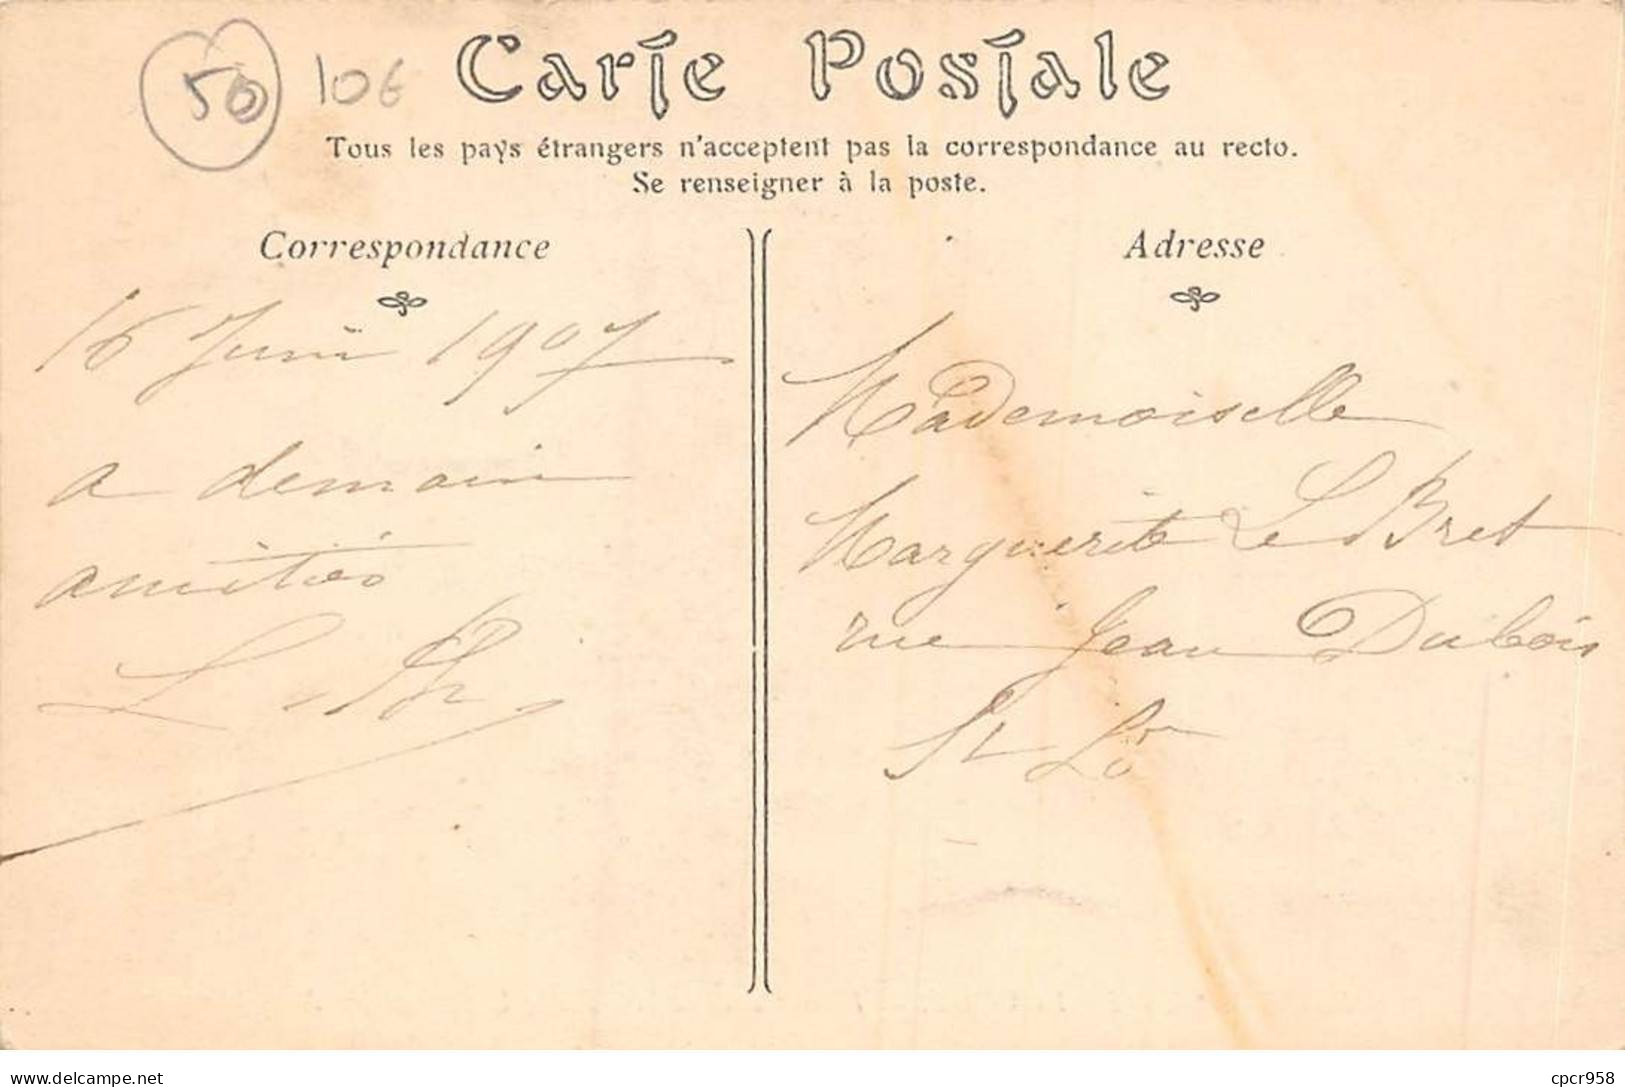 50 10€
Carte Postale
Tous les pays étrangers n'acceptent pas la correspondance au recto.
Se renseigner à la poste.
Correspondance
16 Juin 1907
a demain
amitiés
Adresse
Mademoiselle
Marguerite Le Bret
rue Jean Dubois
St Lô
www.delcampe.net
cpcr958